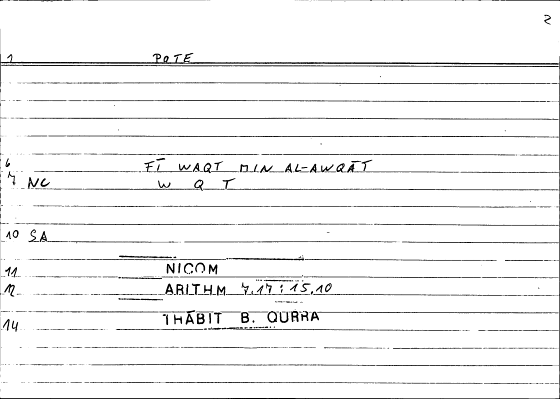 2
1 POTE
6 FĪ WAQT MIN AL-AWQĀT
7 NC W Q T
10 SA
11 NICOM
12 ARITHM 7.17 : 15.10
14 THĀBIT B. QURRA